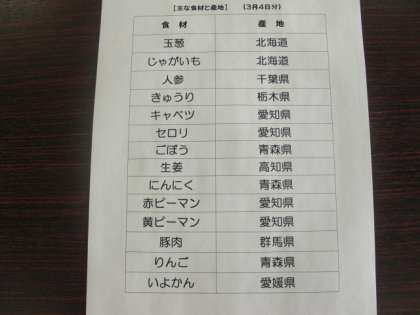 【主な食材と産地】 (3月4日分)
食材 産地
玉葱 北海道
じゃがいも 北海道
人参 千葉県
きゅうり 栃木県
キャベツ 愛知県
セロリ 愛知県
ごぼう 青森県
生姜 高知県
にんにく 青森県
赤ピーマン 愛知県
黄ピーマン 愛知県
豚肉 群馬県
りんご 青森県
いよかん 愛媛県